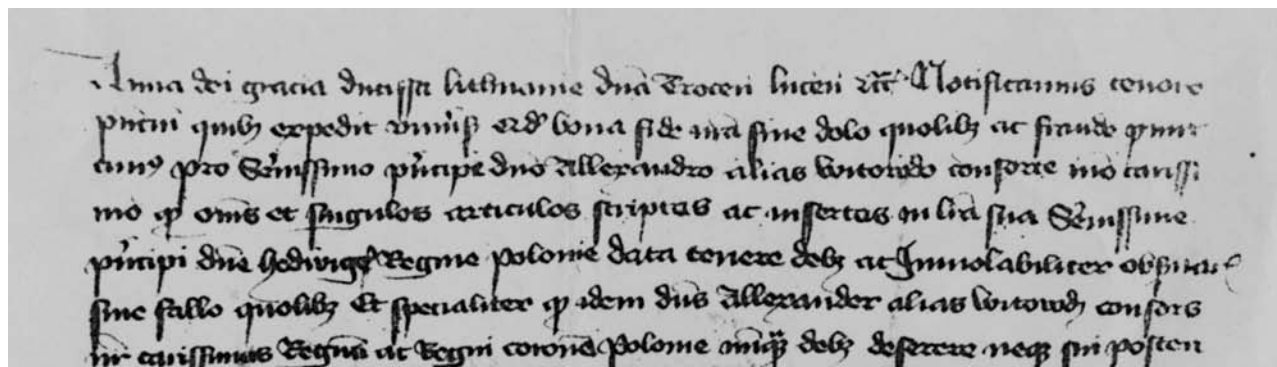 Anna dei gracia ducissa lithwanie dna Trocen lucen etc Notificamus tenore
pncm quibz expedit vniuersis bona fide nra sine dolo quolibz ac fraude
pro Serenissimo pncipe dno Allexandro alias witowdo consorte nro carissi
mo qz omes et singulos articulos scriptos ac insertos in lra sua Serenissime
pncipi dne hedwigi Regine polonie data tenere debz ac Inuiolabiliter obseruar
sine fallo quolibz Et specialiter qz idem dns Allexander alias witowdz consors
nr carissimus Regnu ac Regni corona polonie nuqz debz deserere neqz sui posteri